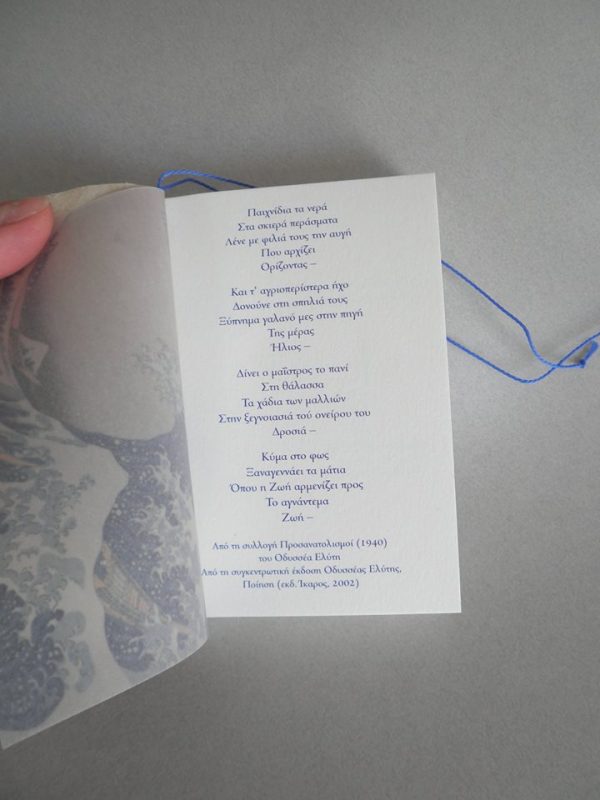 Παιχνίδια τα νερά
Στα σκιερά περάσματα
Λένε με φιλιά τους την αυγή
Που αρχίζει
Ορίζοντας –
Και τ' αγριοπερίστερα ήχο
Δονούνε στη σπηλιά τους
Ξύπνημα γαλανό μες στην πηγή
Της μέρας
Ήλιος –
Δίνει ο μαΐστρος το πανί
Στη θάλασσα
Τα χάδια των μαλλιών
Στην ξεγνοιασιά τού ονείρου του
Δροσιά –
Κύμα στο φως
Ξαναγεννάει τα μάτια
Όπου η Ζωή αρμενίζει προς
Το αγνάντεμα
Ζωή –
Από τη συλλογή Προσανατολισμοί (1940)
του Οδυσσέα Ελύτη
Από τη συγκεντρωτική έκδοση Οδυσσέας Ελύτης,
Ποίηση (εκδ. Ίκαρος, 2002)